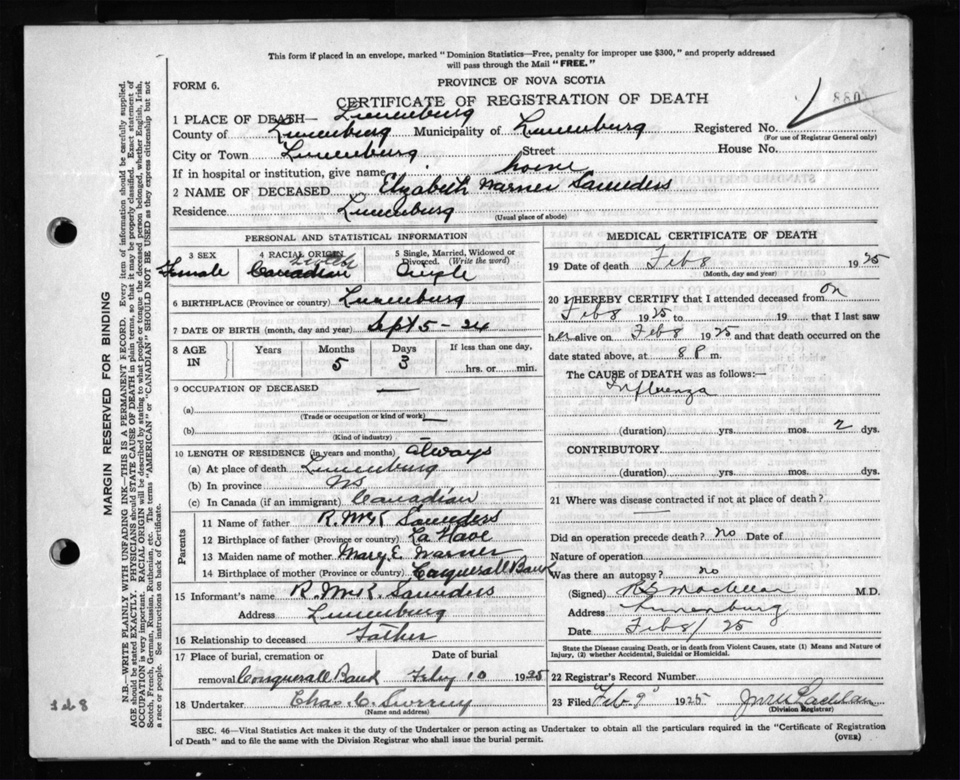 This form if placed in an envelope, marked "Dominion Statistics—Free, penalty for improper use $300," and properly addressed
will pass through the Mail "FREE."
FORM 6.
PROVINCE OF NOVA SCOTIA
CERTIFICATE OF REGISTRATION OF DEATH
1 PLACE OF DEATH— Lunenburg
County of Lunenburg Municipality of Lunenburg Registered No.
(For use of Registrar General only)
City or Town Lunenburg Street House No.
If in hospital or institution, give name home
2 NAME OF DECEASED Elizabeth Warner Saunders
Residence Lunenburg
(Usual place of abode)
PERSONAL AND STATISTICAL INFORMATION
3 SEX Female
4 RACIAL ORIGIN Canadian
5 Single, Married, Widowed or Divorced. (Write the word) Single
6 BIRTHPLACE (Province or country) Lunenburg
7 DATE OF BIRTH (month, day and year) Sept 5 - 24
8 AGE IN Years Months 5 Days 3 If less than one day, hrs. or min.
9 OCCUPATION OF DECEASED —
(a)
(Trade or occupation or kind of work)
(b) —
(Kind of industry)
10 LENGTH OF RESIDENCE (in years and months) always
(a) At place of death Lunenburg
(b) In province NS
(c) In Canada (if an immigrant) Canadian
Parents
11 Name of father R. McK Saunders
12 Birthplace of father (Province or country) La Have
13 Maiden name of mother Mary E. Warner
14 Birthplace of mother (Province or country) Conquerall Bank
15 Informant's name R. McK. Saunders
Address Lunenburg
16 Relationship to deceased Father
17 Place of burial, cremation or removal Conquerall Bank
Date of burial Feby 10 1925
18 Undertaker Chas. C.
(Name and address)
MEDICAL CERTIFICATE OF DEATH
19 Date of death Feb 8 1925
(Month, day and year)
20 I HEREBY CERTIFY that I attended deceased from on
Feb 8 1925 to 19 that I last saw
her alive on Feb 8 1925 and that death occurred on the
date stated above, at 8 P m.
The CAUSE of DEATH was as follows:—
Influenza
(duration) yrs. mos. 2 dys.
CONTRIBUTORY
(duration) yrs. mos. dys.
21 Where was disease contracted if not at place of death?
Did an operation precede death? no Date of
Nature of operation
Was there an autopsy? no
(Signed) M.D.
Address Lunenburg
Date Feb 8/25
State the Disease causing Death, or in death from Violent Causes, state (1) Means and Nature of
Injury, (2) whether Accidental, Suicidal or Homicidal.
22 Registrar's Record Number
23 Filed Feb 9 1925
(Division Registrar)
SEC. 46—Vital Statistics Act makes it the duty of the Undertaker or person acting as Undertaker to obtain all the particulars required in the "Certificate of Registration
of Death" and to file the same with the Division Registrar who shall issue the burial permit.
(OVER)
MARGIN RESERVED FOR BINDING
N.B.—WRITE PLAINLY WITH UNFADING INK—THIS IS A PERMANENT RECORD. Every item of information should be carefully supplied.
AGE should be stated EXACTLY. PHYSICIANS should STATE CAUSE OF DEATH in plain terms, so that it may be properly classified. Exact statement of
OCCUPATION is very important. RACIAL ORIGIN will be described by stating to what people or tongue the deceased person belonged, whether English, Irish,
Scotch, French, German, Russian, Ruthenian, etc. The terms "AMERICAN" or "CANADIAN" SHOULD NOT BE USED as they express citizenship but not
a race or people. See instructions on back of Certificate.